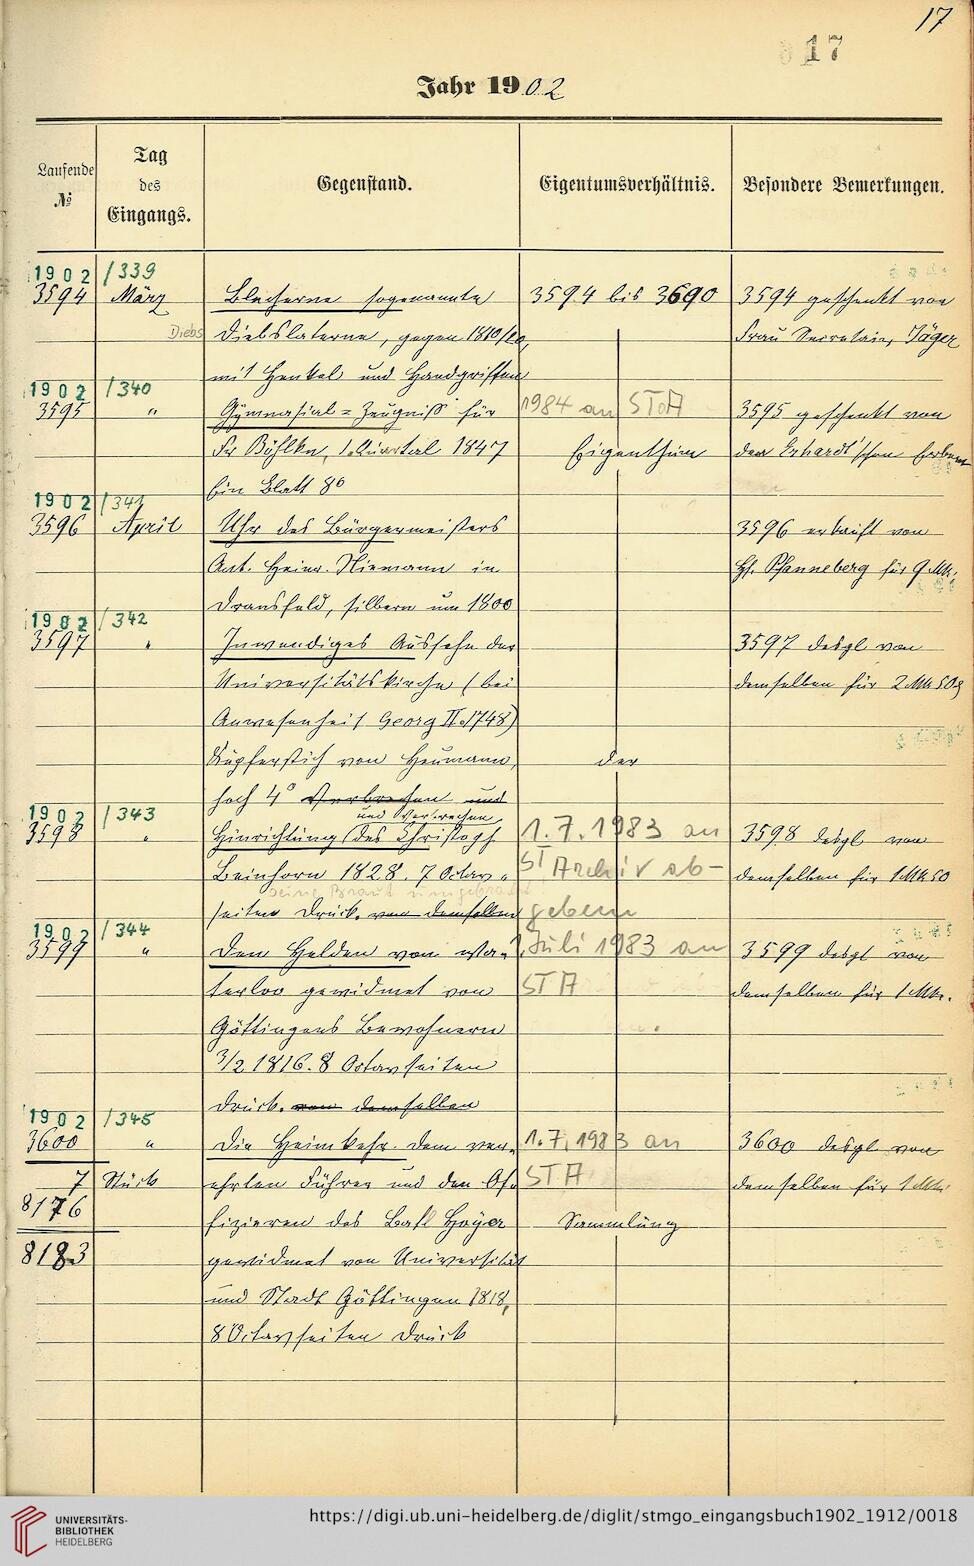 17
17
Jahr 1902
Laufende №
Tag des Eingangs.
Gegenstand.
Eigentumsverhältnis.
Besondere Bemerkungen.
1902 /339
3594 März Blecherne sogenannte 3594 bis 3690 3594 geschenkt von
Diebs Diebslaterne, gegen 1810/20, Frau Secretair Jäger
mit Henkel und Handgriffen
1902 /340
3595 " Gymnasial=Zeugniß für 1984 an STA 3595 geschenkt von
Fr Böhlke, 1. Quartal 1847 Eigenthum den Erhardt'schen Erben
Ein Blatt 8°
1902 /341
3596 April Uhr des Bürgermeisters 3596 erkauft von
Ant. Heinr. Niemann in H. Pfanneberg für 9 Mk.
Dransfeld, silbern um 1800
1902 /342
3597 " Inwendiges Aussehn der 3597 desgl von
Universitätskirche (bei demselben für 2 Mk 50
Anwesenheit Georg II. 1748)
Kupferstich von Heumann, der
hoch 4° Verbrechen und
und Verbrechen
1902 /343
3598 " Hinrichtung des Christoph 1.7.1983 an 3598 desgl von
Beinhorn 1828. 7 Octav- ST Archiv ab- demselben für 1 Mk 50
seine Braut umgebracht
seiten Druck. von demselben geben
1902 /344
3599 " Den Helden von Wa- Juli 1983 an 3599 desgl von
terloo gewidmet von STA demselben für 1 Mk.
Göttingens Bewohnern
3/2 1816. 8 Octavseiten
Druck. von demselben
1902 /345
3600 " Die Heimkehr. Dem ver- 1.7.1983 an 3600 desgl von
7 Stück ehrten Führer und den Of- STA demselben für 1 Mk.
8176 fizieren des Batl Hoyer Sammlung
8183 gewidmet von Universität
und Stadt Göttingen 1818,
8 Octavseiten Druck
UNIVERSITÄTS-
BIBLIOTHEK
HEIDELBERG
https://digi.ub.uni-heidelberg.de/diglit/stmgo_eingangsbuch1902_1912/0018